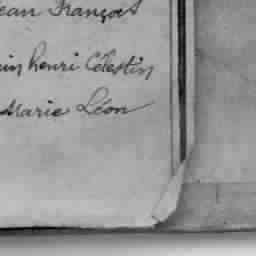 Jean François
henri Célestin
Marie Léon